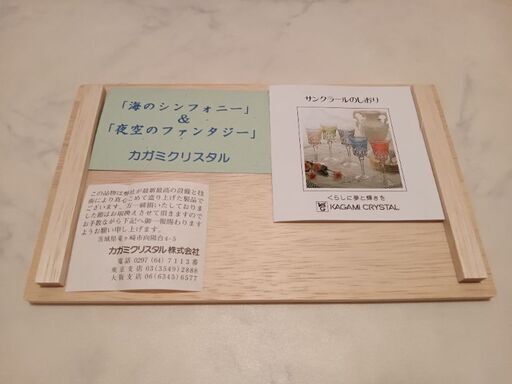 「海のシンフォニー」
&
「夜空のファンタジー」
カガミクリスタル
サンクラールのしおり
くらしに夢と輝きを
KAGAMI CRYSTAL
この品物は弊社が最新最高の設備と技
術により真心こめて造り上げた製品で
ございます。万一破損いたしておりま
した節はお取換えさせて頂きますので
お手数ながら下記へ御一報賜わります
ようお願い申し上げます。
茨城県竜ヶ崎市向陽台4-5
カガミクリスタル株式会社
電話 0297 (64) 7113番
東京支店 03(3549)2888
大阪支店 06(6345)6577